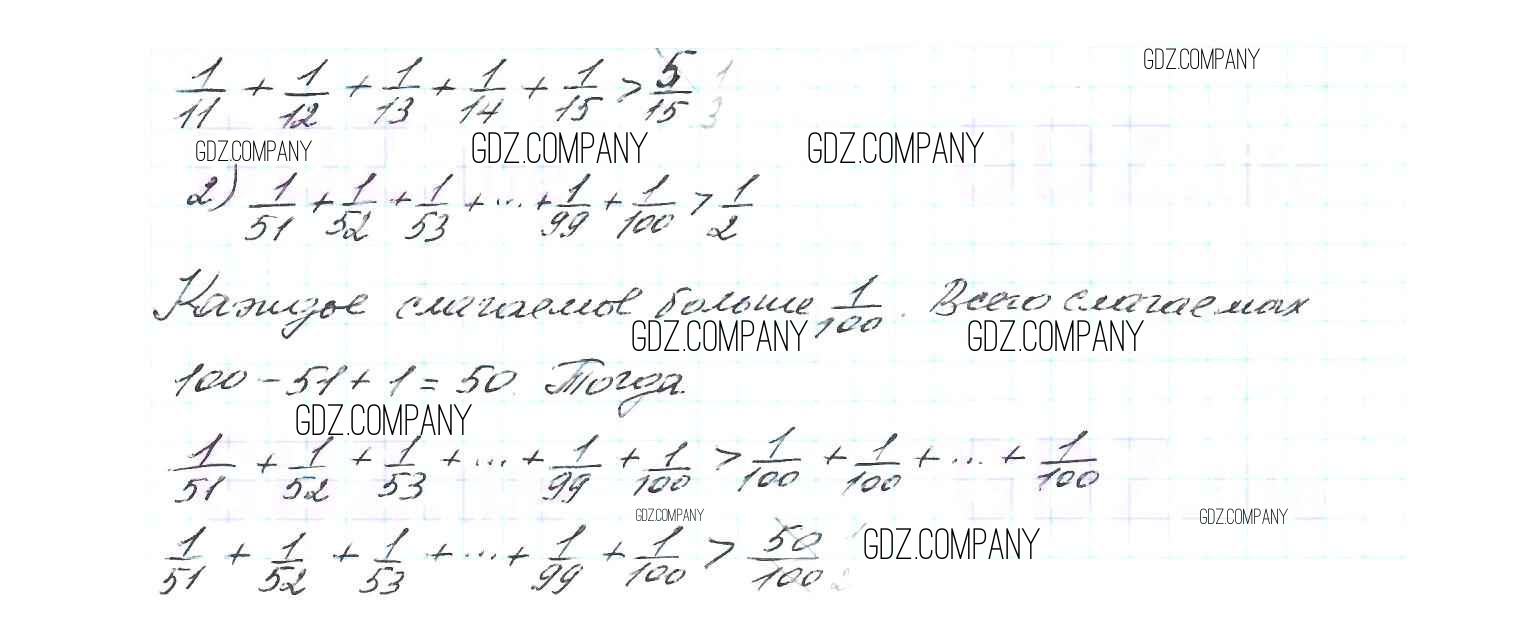 1/11 + 1/12 + 1/13 + 1/14 + 1/15 > 5/15 1/3
GDZ.COMPANY
GDZ.COMPANY GDZ.COMPANY GDZ.COMPANY
2) 1/51 + 1/52 + 1/53 + ... + 1/99 + 1/100 > 1/2
Каждое слагаемое больше 1/100. Всего слагаемых
GDZ.COMPANY GDZ.COMPANY
100 - 51 + 1 = 50. Тогда
GDZ.COMPANY
1/51 + 1/52 + 1/53 + ... + 1/99 + 1/100 > 1/100 + 1/100 + ... + 1/100
GDZ.COMPANY GDZ.COMPANY
1/51 + 1/52 + 1/53 + ... + 1/99 + 1/100 > 50/100 1/2
GDZ.COMPANY